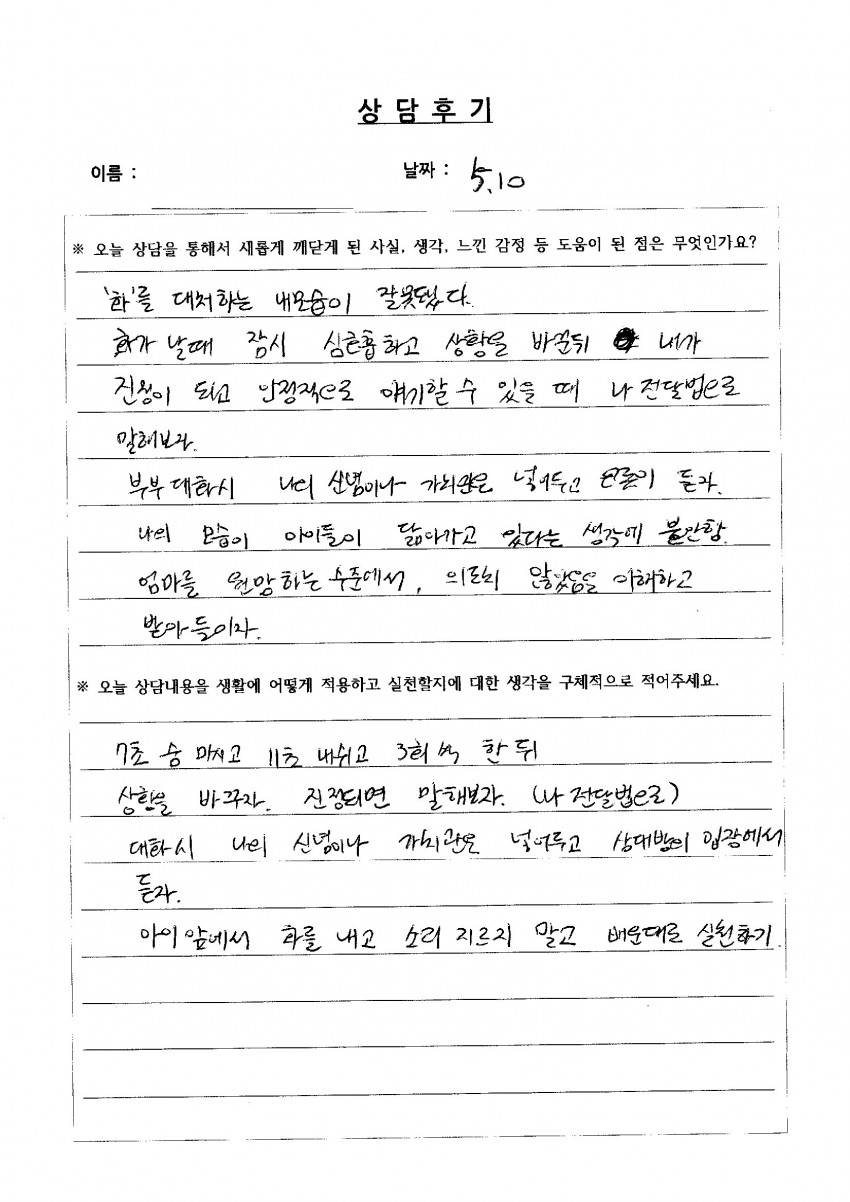 상 담 후 기
이름 :
날짜 : 5.10
※ 오늘 상담을 통해서 새롭게 깨닫게 된 사실, 생각, 느낀 감정 등 도움이 된 점은 무엇인가요?
'화'를 대처하는 내모습이 잘못됐다.
화가 날때 잠시 심호흡하고 상황을 바꾼뒤 내가
진정이 되고 안정적으로 얘기할 수 있을 때 나 전달법으로
말해보자.
부부대화시 나의 신념이나 가치관은 넣어두고 온전히 듣자.
나의 모습이 아이들이 닮아가고 있다는 생각에 불안함.
엄마를 원망하는 수준에서, 의도치 않았음을 이해하고
받아들이자.
※ 오늘 상담내용을 생활에 어떻게 적용하고 실천할지에 대한 생각을 구체적으로 적어주세요.
7초 숨 마시고 11초 내쉬고 3회 씩 한 뒤
상황을 바꾸자. 진정되면 말해보자. (나 전달법으로)
대화시 나의 신념이나 가치관은 넣어두고 상대방의 입장에서
듣자.
아이 앞에서 화를 내고 소리 지르지 말고 배운대로 실천하기.